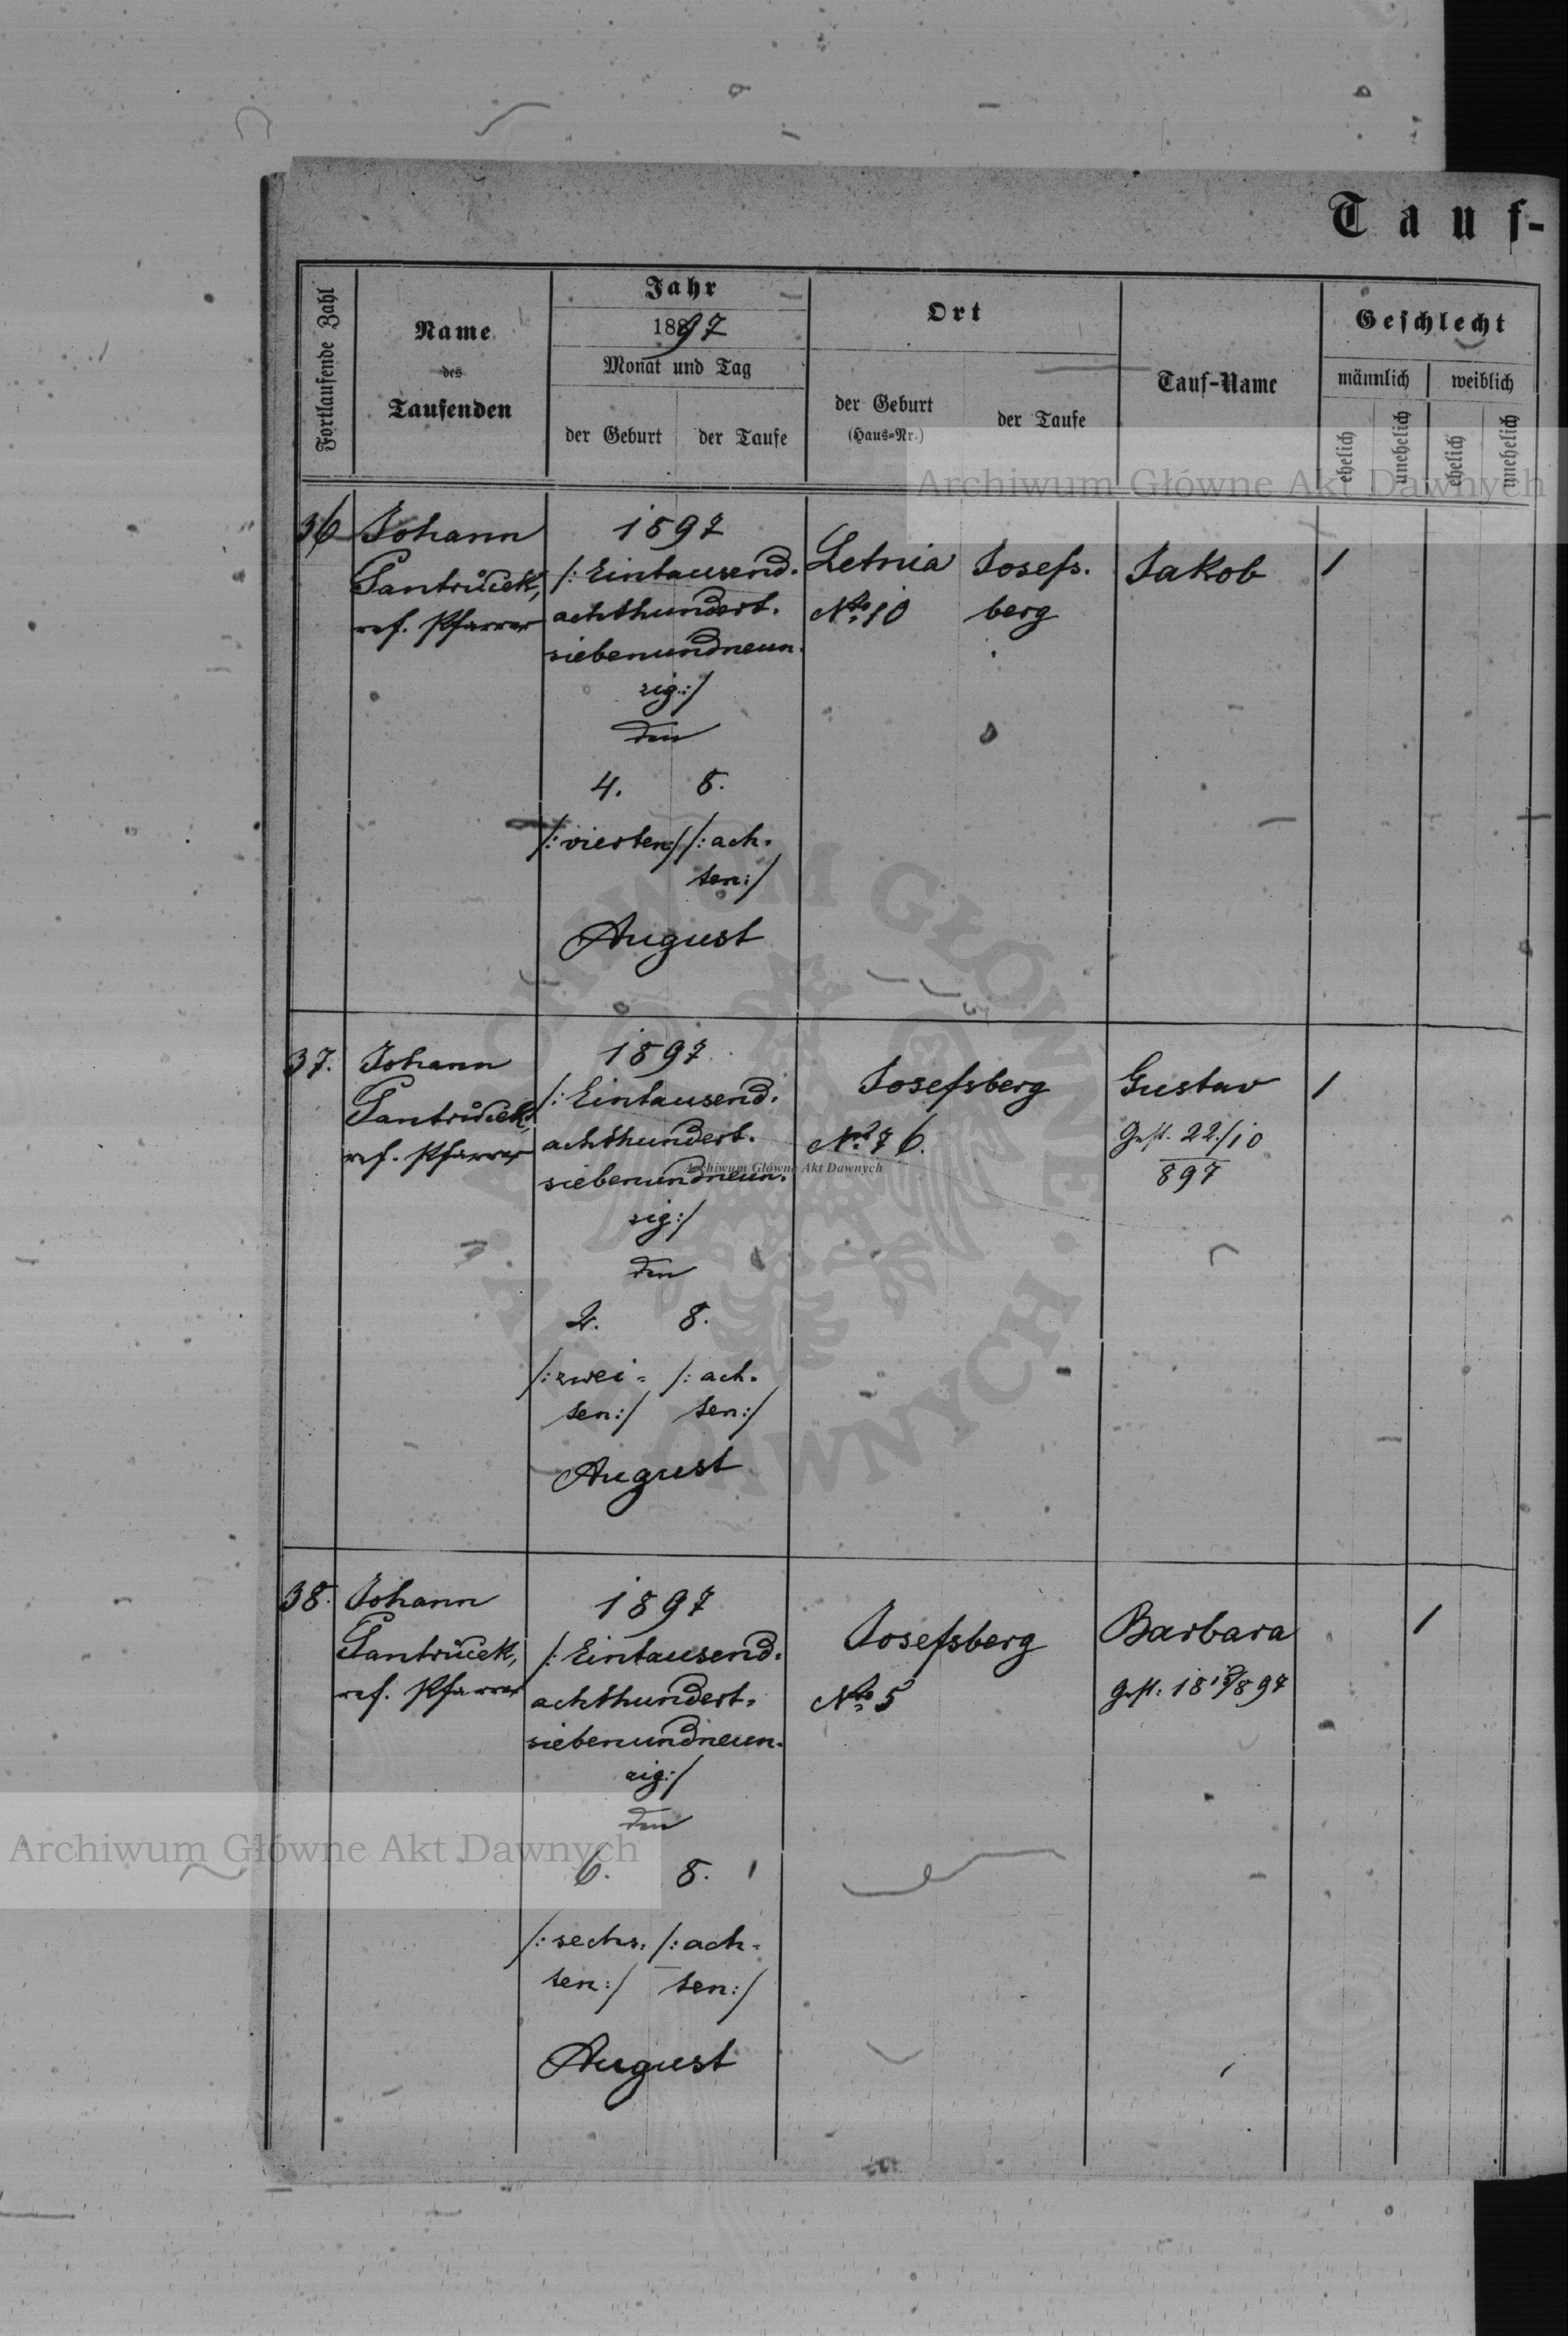 Tauf-
Fortlaufende Zahl
Name
des
Taufenden
Jahr
1897
Monat und Tag
der Geburt
der Taufe
Ort
der Geburt
(Haus=Nr.)
der Taufe
Tauf-Name
Geschlecht
männlich
weiblich
ehelich
unehelich
ehelich
unehelich
Archiwum Główne Akt Dawnych
36
Johann
ref. Pfarrer
1897
/: Eintausend.
achthundert.
siebenundneun.
zig :/
den
4. 8.
/: vierten :/ /: ach.
ten :/
August
Letnia
No. 10
Josefs.
berg
Jakob
1
37.
Johann
ref. Pfarrer
1897
/: Eintausend.
achthundert.
siebenundneun.
zig :/
den
2. 8.
/: zwei = /: ach.
ten :/ ten :/
August
Josefsberg
No. 76.
Gustav
Gest. 22./10
897
1
Archiwum Główne Akt Dawnych
ARCHIWUM GŁÓWNE · AKT DAWNYCH ·
38.
Johann
ref. Pfarrer
1897
/: Eintausend.
achthundert.
siebenundneun.
zig :/
den
6. 8.
/: sechs. /: ach-
ten :/ ten :/
August
Josefsberg
No. 5
Barbara
1
Archiwum Główne Akt Dawnych